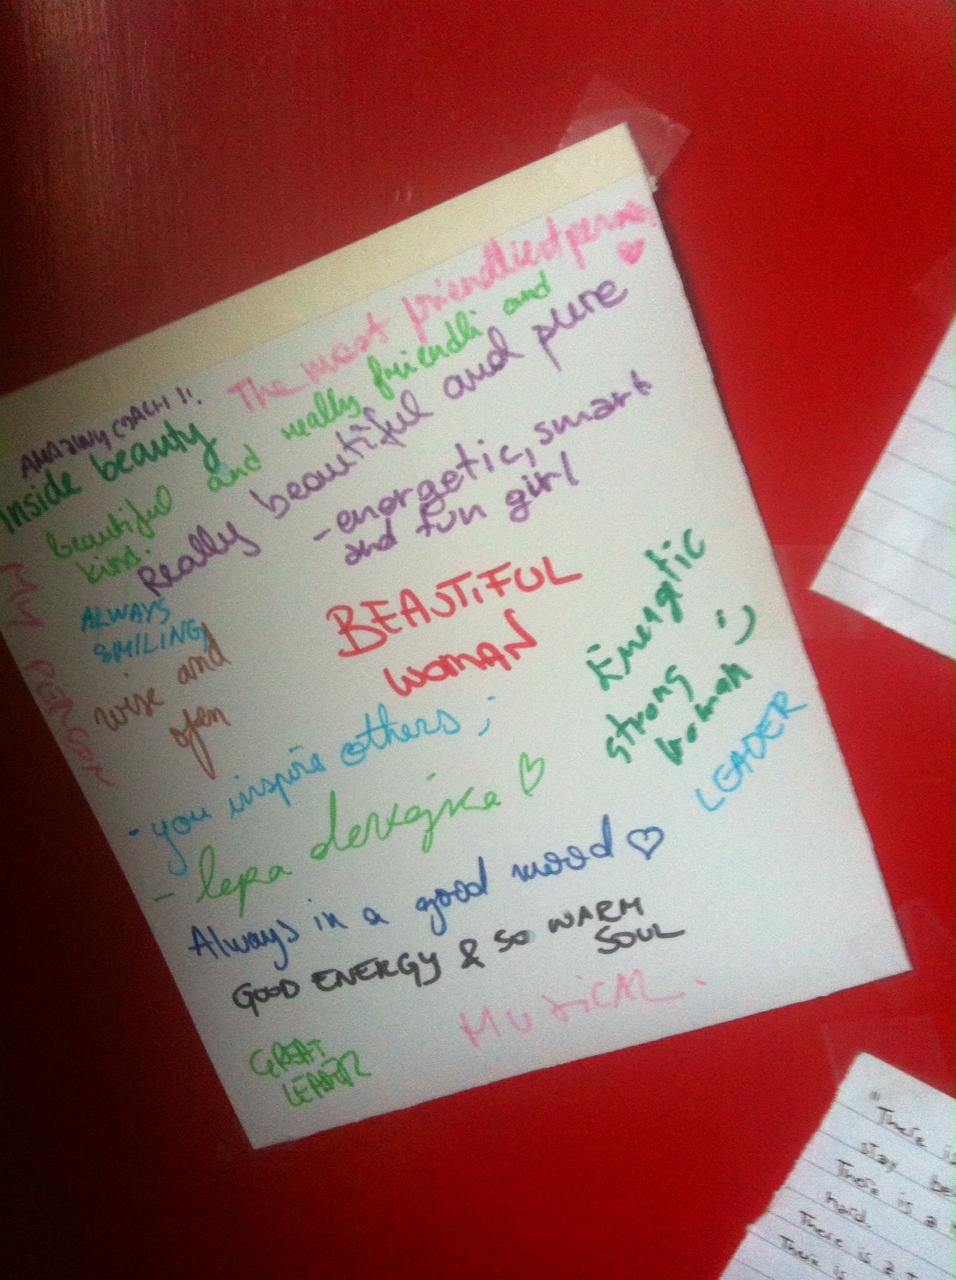 The most friendliest person
AMAZING COACH !!
Inside beauty
beautiful and really friendli and
kind.
Really beautiful and pure
- energetic, smart
and fun girl
MY PERSON
ALWAYS
SMILING
wise and
open
BEAUTIFUL
WOMAN
Energetic
strong
woman :)
- you inspire others ;
LEADER
- lepa devojka
Always in a good mood
GOOD ENERGY & SO WARM
SOUL
MUSICAL.
GREAT
LEADER
"There is
stay
There is a
hard.
There is a
There is